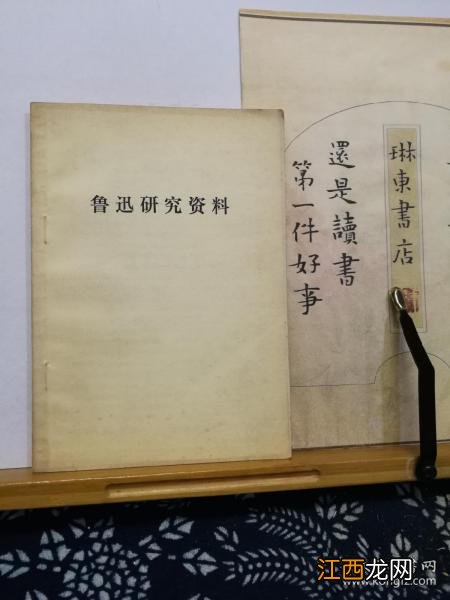 鲁迅研究资料
琳東書店
還是讀書
第一件好事
江西龙网
www.kongfz.com